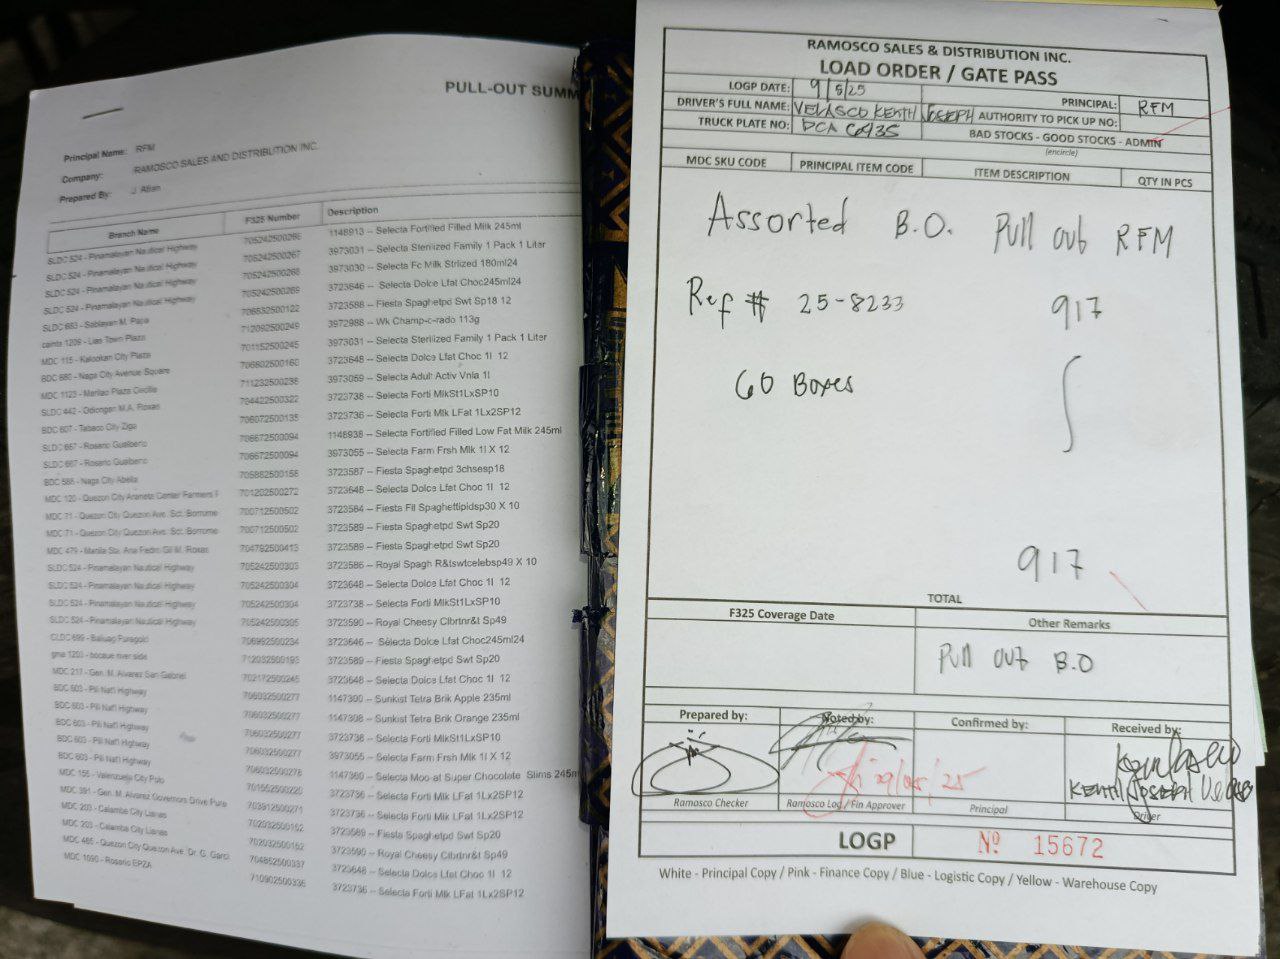 PULL-OUT SUMM
Principal Name: RFM
Company: RAMOSCO SALES AND DISTRIBUTION INC.
Prepared By: J. Atian
Branch Name F325 Number Description
SLDC 524 - Pinamalayan Nautical Highway 705242500266 1148913 -- Selecta Fortified Filled Milk 245ml
SLDC 524 - Pinamalayan Nautical Highway 705242500267 3973031 -- Selecta Sterilized Family 1 Pack 1 Liter
SLDC 524 - Pinamalayan Nautical Highway 705242500268 3973030 -- Selecta Fc Milk Strlized 180ml24
SLDC 524 - Pinamalayan Nautical Highway 705242500269 3723646 -- Selecta Dolce Lfat Choc245ml24
SLDC 683 - Sablayan M. Papa 706832500122 3723588 -- Fiesta Spaghetpd Swt Sp18 12
cainta 1209 - Lias Town Plaza 712092500249 3972988 -- Wk Champ-c-rado 113g
MDC 115 - Kalookan City Plaza 701152500245 3973031 -- Selecta Sterilized Family 1 Pack 1 Liter
BDC 680 - Naga City Avenue Square 706802500160 3723648 -- Selecta Dolce Lfat Choc 1l 12
MDC 1123 - Marilao Plaza Cecilia 711232500238 3973059 -- Selecta Adult Activ Vnla 1l
SLDC 442 - Odiongan M.A. Roxas 704422500322 3723738 -- Selecta Forti MlkSt1LxSP10
BDC 607 - Tabaco City Ziga 706072500135 3723736 -- Selecta Forti Mlk LFat 1Lx2SP12
SLDC 667 - Rosario Gualberto 706672500094 1148938 -- Selecta Fortified Filled Low Fat Milk 245ml
SLDC 667 - Rosario Gualberto 706672500094 3973055 -- Selecta Farm Frsh Mlk 1l X 12
BDC 588 - Naga City Abella 705882500158 3723587 -- Fiesta Spaghetpd 3chsesp18
MDC 120 - Quezon City Araneta Center Farmers P 701202500272 3723648 -- Selecta Dolce Lfat Choc 1l 12
MDC 71 - Quezon City Quezon Ave. Sct. Borrome 700712500502 3723584 -- Fiesta Fil Spaghettipdsp30 X 10
MDC 71 - Quezon City Quezon Ave. Sct. Borrome 700712500502 3723589 -- Fiesta Spaghetpd Swt Sp20
MDC 479 - Manila Sta. Ana Pedro Gil M. Roxas 704792500413 3723589 -- Fiesta Spaghetpd Swt Sp20
SLDC 524 - Pinamalayan Nautical Highway 705242500303 3723586 -- Royal Spagh R&tswtcelebsp49 X 10
SLDC 524 - Pinamalayan Nautical Highway 705242500304 3723648 -- Selecta Dolce Lfat Choc 1l 12
SLDC 524 - Pinamalayan Nautical Highway 705242500304 3723738 -- Selecta Forti MlkSt1LxSP10
SLDC 524 - Pinamalayan Nautical Highway 705242500305 3723590 -- Royal Cheesy Clbrtnr&t Sp49
CLDC 699 - Baliuag Puregold 706992500234 3723646 -- Selecta Dolce Lfat Choc245ml24
gma 1203 - bocaue river side 712032500193 3723589 -- Fiesta Spaghetpd Swt Sp20
MDC 217 - Gen. M. Alvarez San Gabriel 702172500245 3723648 -- Selecta Dolce Lfat Choc 1l 12
BDC 603 - Pili Nat'l Highway 706032500277 1147300 -- Sunkist Tetra Brik Apple 235ml
BDC 603 - Pili Nat'l Highway 706032500277 1147308 -- Sunkist Tetra Brik Orange 235ml
BDC 603 - Pili Nat'l Highway 706032500277 3723738 -- Selecta Forti MlkSt1LxSP10
BDC 603 - Pili Nat'l Highway 706032500277 3973055 -- Selecta Farm Frsh Mlk 1l X 12
BDC 603 - Pili Nat'l Highway 706032500278 1147360 -- Selecta Moo-at Super Chocolate Slims 245m
MDC 155 - Valenzuela City Polo 701552500220 3723736 -- Selecta Forti Mlk LFat 1Lx2SP12
MDC 391 - Gen. M. Alvarez Governors Drive Pure 703912500271 3723736 -- Selecta Forti Mlk LFat 1Lx2SP12
MDC 203 - Calamba City Lianas 702032500152 3723589 -- Fiesta Spaghetpd Swt Sp20
MDC 203 - Calamba City Lianas 702032500152 3723590 -- Royal Cheesy Clbrtnr&t Sp49
MDC 485 - Quezon City Quezon Ave. Dr. G. Garci 704852500337 3723648 -- Selecta Dolce Lfat Choc 1l 12
MDC 1090 - Rosario EPZA 710902500336 3723736 -- Selecta Forti Mlk LFat 1Lx2SP12
RAMOSCO SALES & DISTRIBUTION INC.
LOAD ORDER / GATE PASS
LOGP DATE: 9/5/25 PRINCIPAL: RFM
DRIVER'S FULL NAME: VELASCO KENTH JOSEPH AUTHORITY TO PICK UP NO:
TRUCK PLATE NO: DCA 6935 BAD STOCKS - GOOD STOCKS - ADMIN
(encircle)
MDC SKU CODE PRINCIPAL ITEM CODE ITEM DESCRIPTION QTY IN PCS
Assorted B.O. Pull out RFM
Ref # 25-8233 917
60 Boxes
917
TOTAL
F325 Coverage Date Other Remarks
Pull out B.O
Prepared by: Noted by: Confirmed by: Received by:
29/05/25
KENTH JOSEPH
Ramosco Checker Ramosco Log / Fin Approver Principal Driver
LOGP Nº 15672
White - Principal Copy / Pink - Finance Copy / Blue - Logistic Copy / Yellow - Warehouse Copy